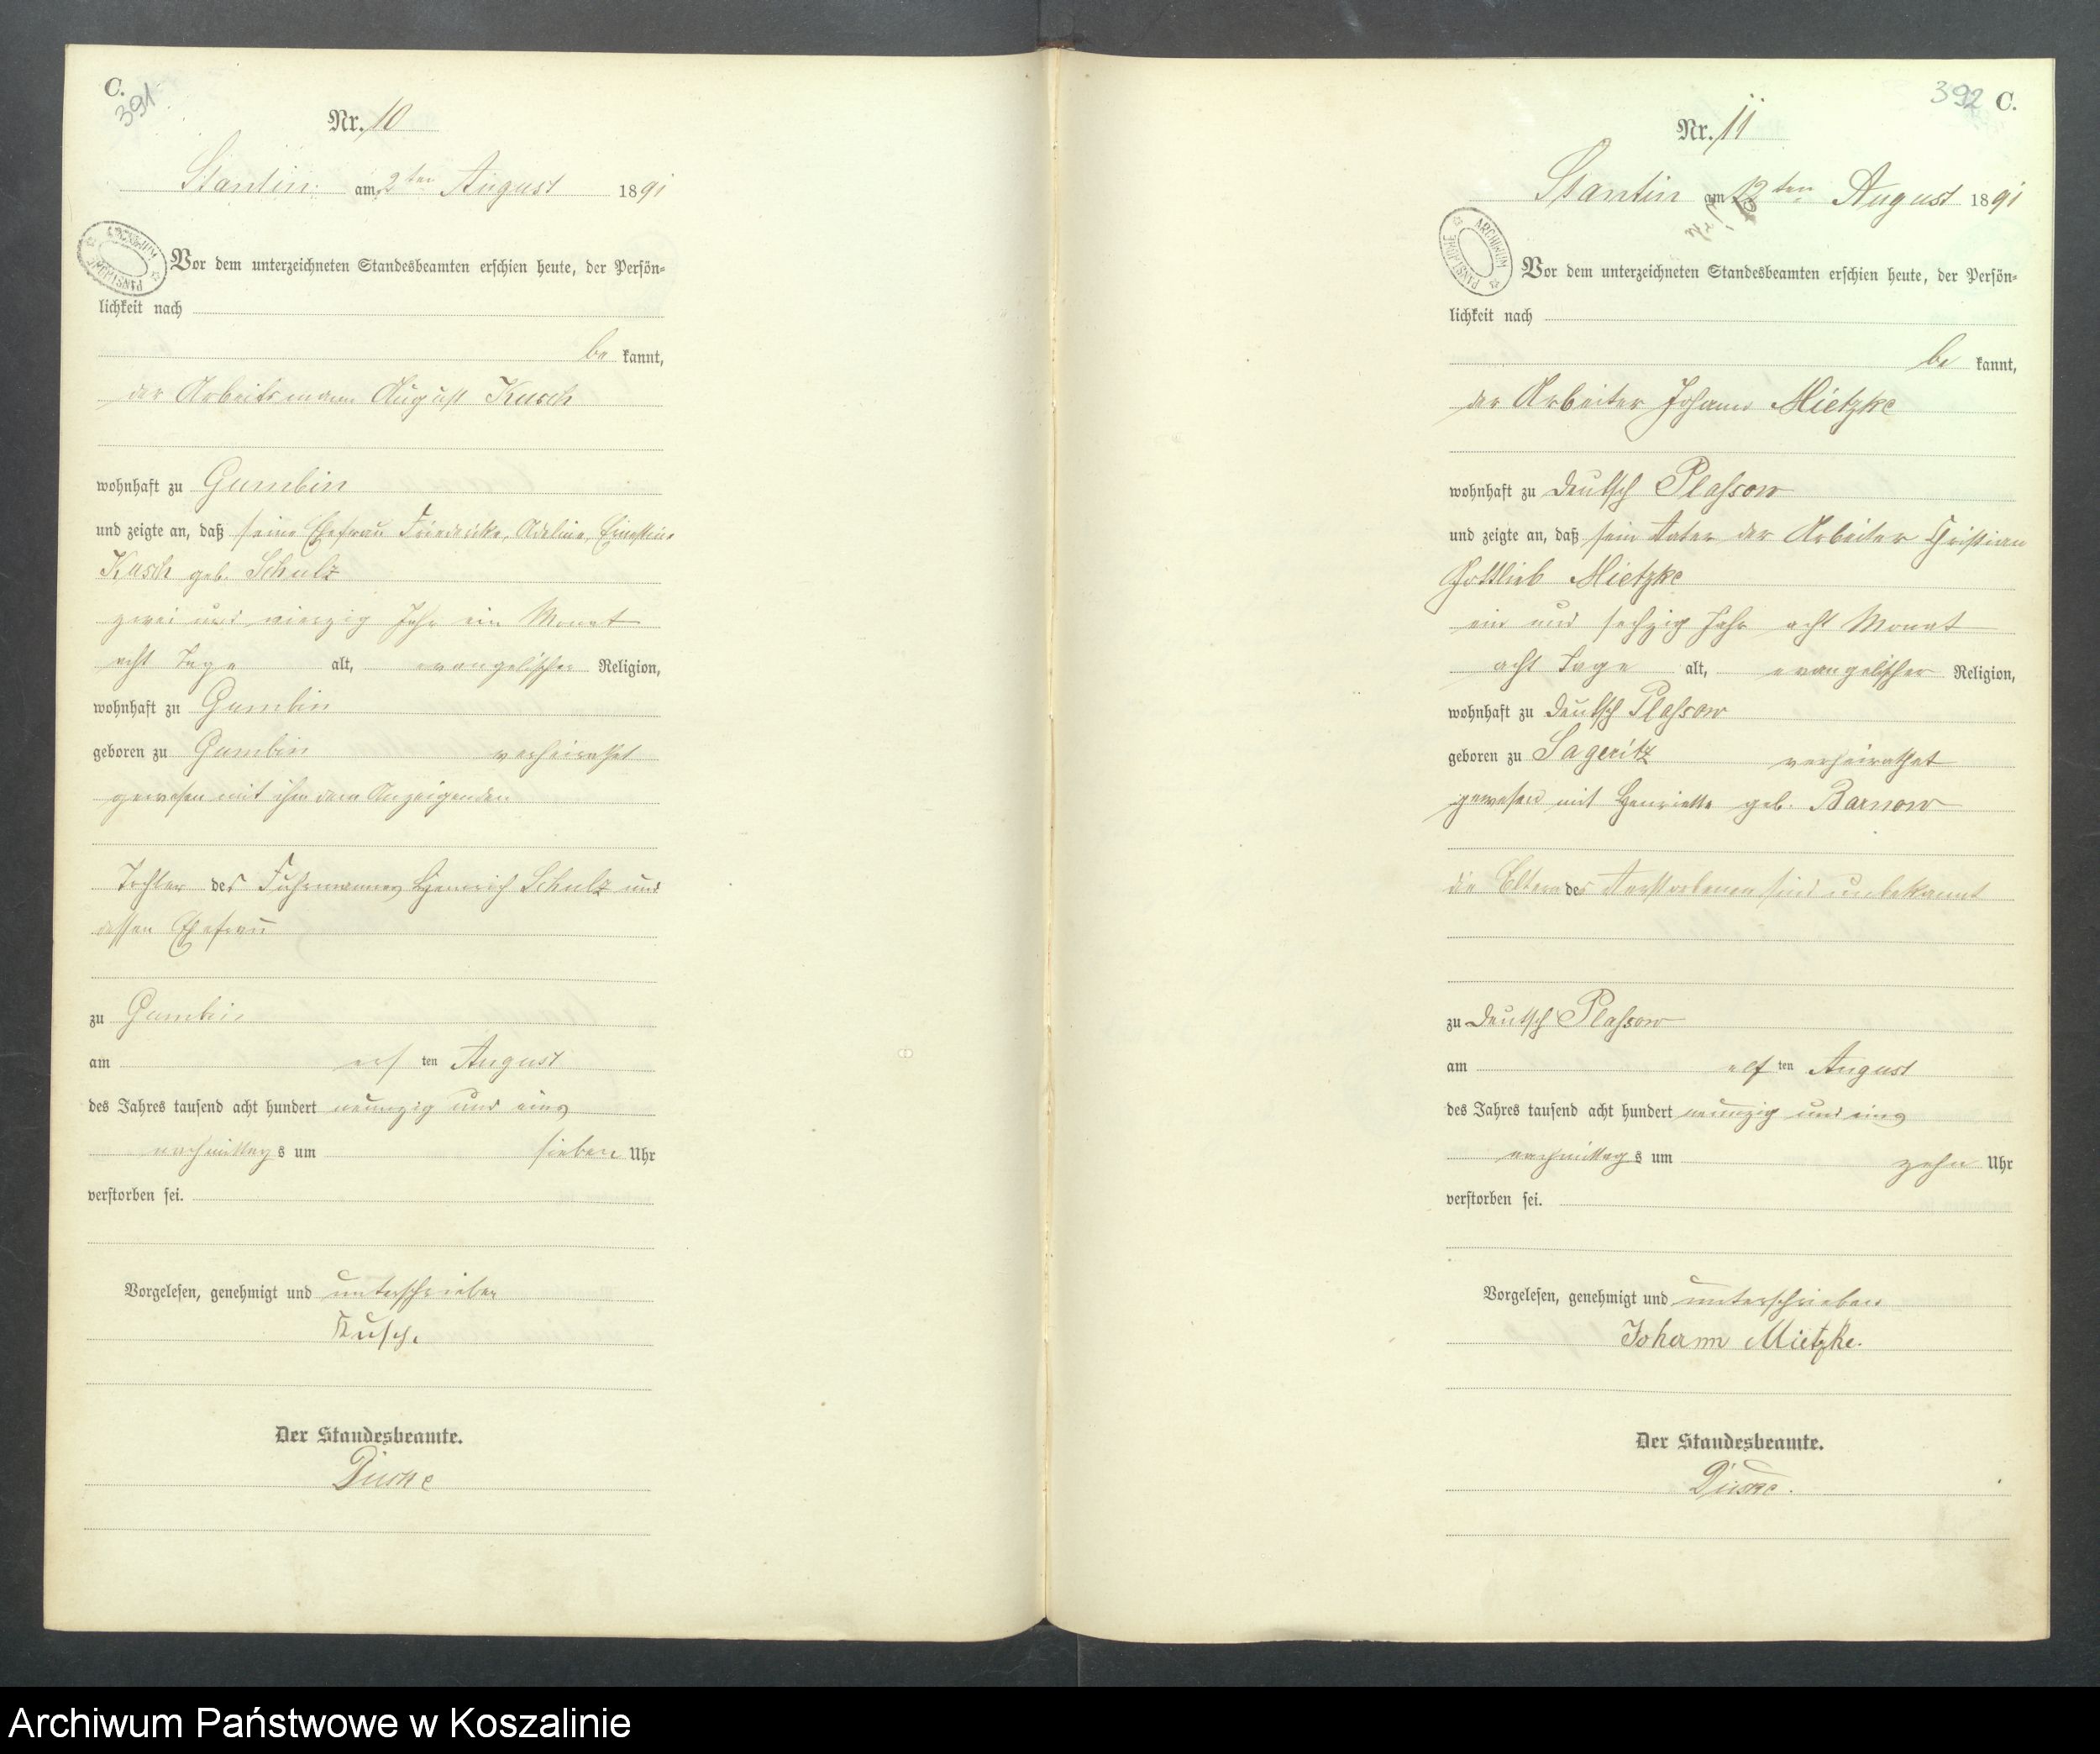 C.
391
Nr. 10
Stantin am 2ten August 1891
ARCHIWUM PAŃSTWOWE
Vor dem unterzeichneten Standesbeamten erschien heute, der Persön=
lichkeit nach
be kannt,
der Arbeitsmann August Kusch
wohnhaft zu Gumbin
und zeigte an, daß seine Ehefrau Friedericke, Adeline, Ernestine
Kusch geb. Schulz
zwei und vierzig Jahr ein Monat
acht Tage alt, evangelischer Religion,
wohnhaft zu Gumbin
geboren zu Gumbin verheirathet
gewesen mit ihm dem Anzeigenden
Tochter des Fuhrmannes Heinrich Schulz und
dessen Ehefrau
zu Gumbin
am ersten August
des Jahres tausend acht hundert neunzig und eins
nachmittags um sieben Uhr
verstorben sei.
Vorgelesen, genehmigt und unterschrieben
Kusch.
Der Standesbeamte.
392 C.
Nr. 11
Stantin am 12ten August 1891
ARCHIWUM PAŃSTWOWE
Vor dem unterzeichneten Standesbeamten erschien heute, der Persön=
lichkeit nach
be kannt,
der Arbeiter Johann Mietzke
wohnhaft zu Deutsch Plassow
und zeigte an, daß sein Vater der Arbeiter Christian
Gottlieb Mietzke
ein und sechzig Jahr acht Monat
acht Tage alt, evangelischer Religion,
wohnhaft zu Deutsch Plassow
geboren zu Sageritz verheirathet
gewesen mit Henriette geb. Barnow
die Eltern des Verstorbenen sind unbekannt
zu Deutsch Plassow
am elften August
des Jahres tausend acht hundert neunzig und eins
nachmittags um zehn Uhr
verstorben sei.
Vorgelesen, genehmigt und unterschrieben
Johann Mietzke.
Der Standesbeamte.
Archiwum Państwowe w Koszalinie